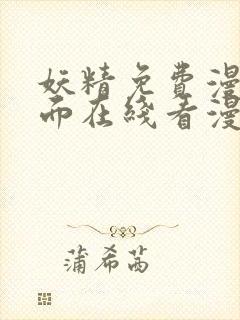 妖精免费漫
而在线看漫
蒲希茜